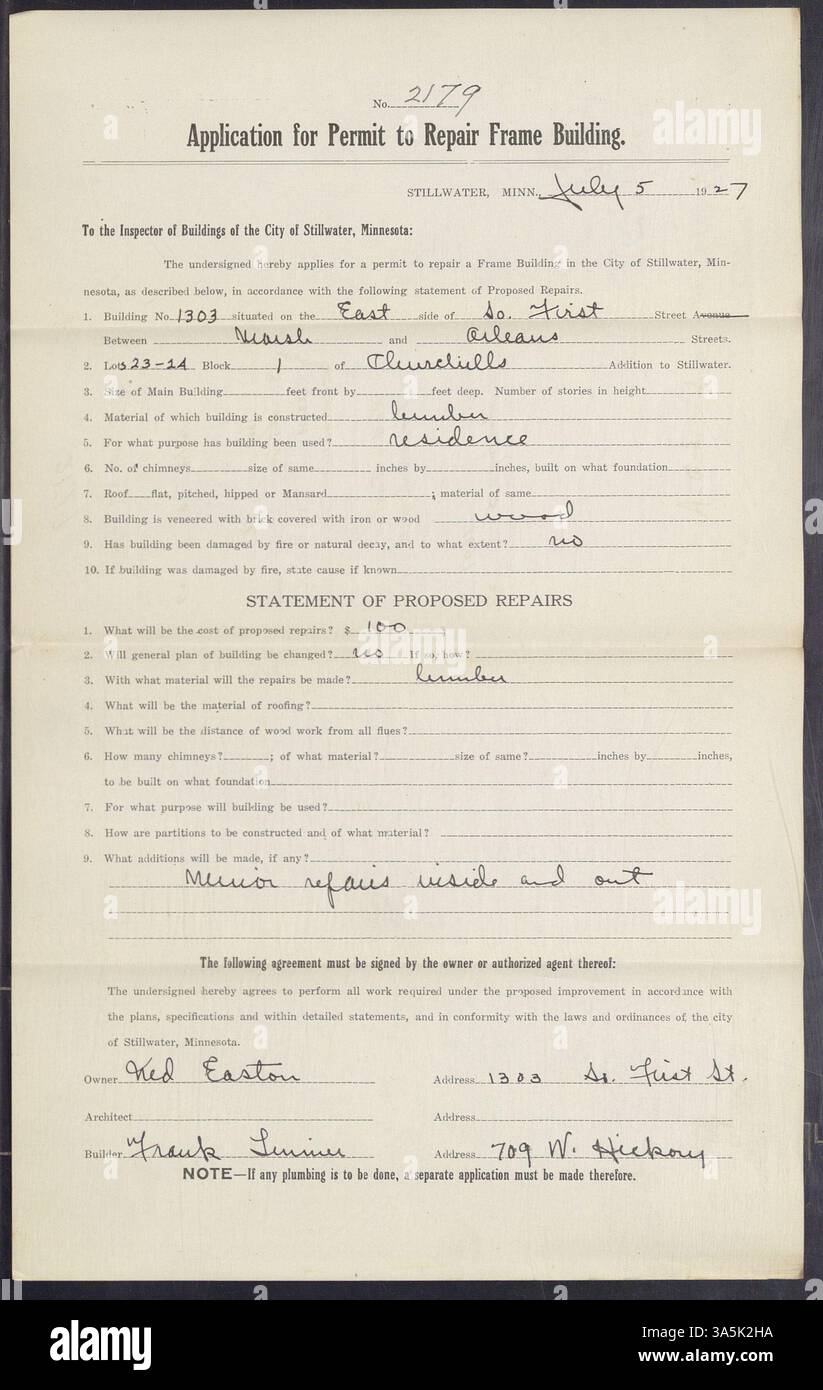 No. 2179
Application for Permit to Repair Frame Building.
STILLWATER, MINN., July 5 1927
To the Inspector of Buildings of the City of Stillwater, Minnesota:
The undersigned hereby applies for a permit to repair a Frame Building in the City of Stillwater, Min-
nesota, as described below, in accordance with the following statement of Proposed Repairs.
1. Building No. 1303 situated on the East side of So. First Street Avenue
Between Marsh and Orleans Streets.
2. Lots 23-24 Block 1 of Churchills Addition to Stillwater.
3. Size of Main Building feet front by feet deep. Number of stories in height
4. Material of which building is constructed lumber
5. For what purpose has building been used? residence
6. No. of chimneys size of same inches by inches, built on what foundation
7. Roof flat, pitched, hipped or Mansard ; material of same
8. Building is veneered with brick covered with iron or wood wood
9. Has building been damaged by fire or natural decay, and to what extent? no
10. If building was damaged by fire, state cause if known
STATEMENT OF PROPOSED REPAIRS
1. What will be the cost of proposed repairs? $ 100
2. Will general plan of building be changed? no If so, how?
3. With what material will the repairs be made? lumber
4. What will be the material of roofing?
5. What will be the distance of wood work from all flues?
6. How many chimneys? ; of what material? size of same? inches by inches,
to be built on what foundation
7. For what purpose will building be used?
8. How are partitions to be constructed and of what material?
9. What additions will be made, if any?
Minor repairs inside and out
The following agreement must be signed by the owner or authorized agent thereof:
The undersigned hereby agrees to perform all work required under the proposed improvement in accordance with
the plans, specifications and within detailed statements, and in conformity with the laws and ordinances of the city
of Stillwater, Minnesota.
Owner Ned Easton Address 1303 So. First St.
Architect Address
Builder Frank Address 709 W. Hickory
NOTE—If any plumbing is to be done, a separate application must be made therefore.
alamy
Image ID: 3A5K2HA
www.alamy.com